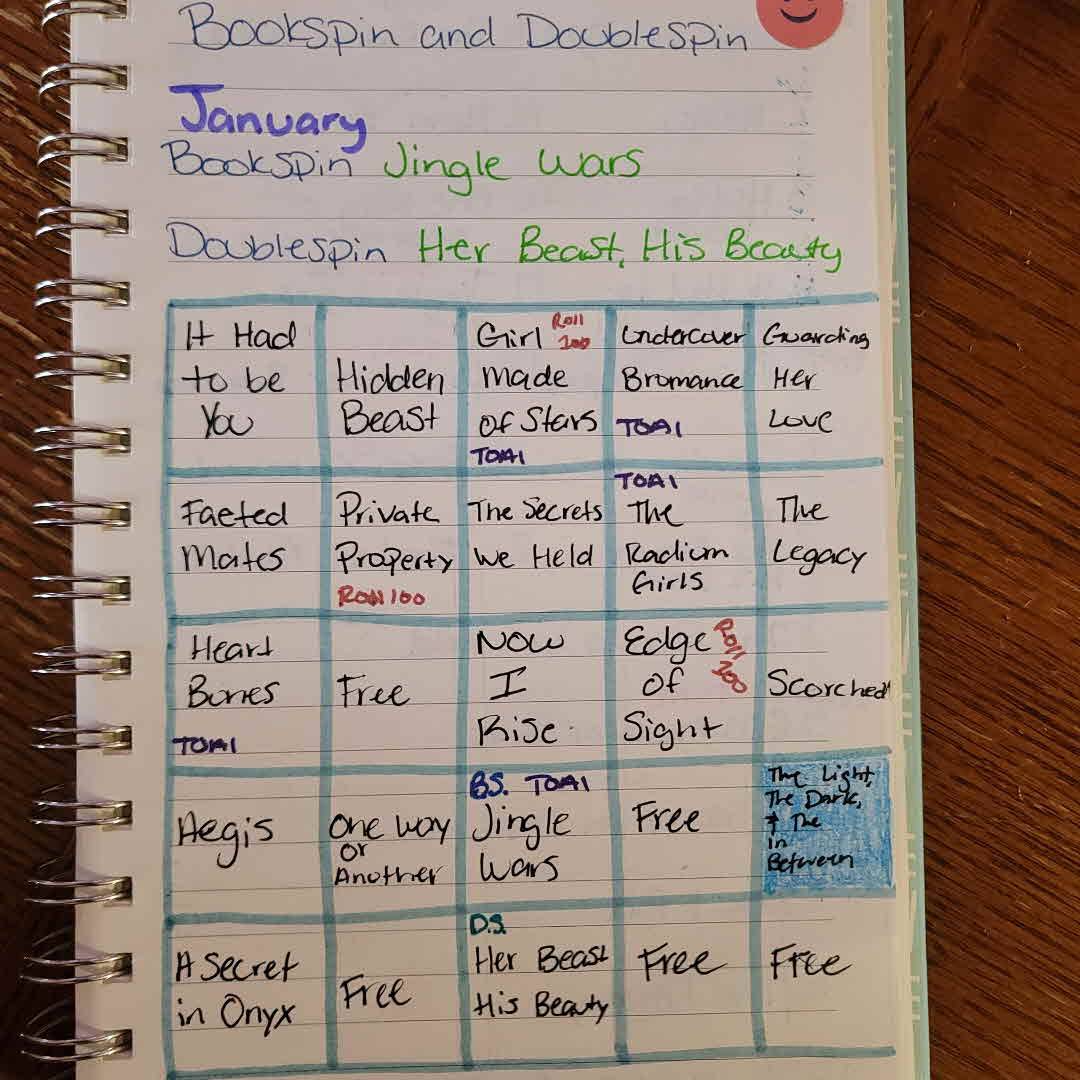 Bookspin and Doublespin
January
Bookspin Jingle Wars
Doublespin Her Beast, His Beauty
It Had
to be
You
Hidden
Beast
Girl Roll
100
Made
of Stars
TOA1
Undercover
Bromance
TOA1
Guarding
Her
Love
Faeted
Mates
Private
Property
Roll 100
The Secrets
We Held
TOA1
The
Radium
Girls
The
Legacy
Heart
Bones
TOA1
Free
Now
I
Rise
Edge Roll
of 100
Sight
Scorched
Aegis
One Way
or
Another
BS. TOA1
Jingle
Wars
Free
The Light,
The Dark,
+ The
in
Between
A Secret
in Onyx
Free
D.S.
Her Beast
His Beauty
Free
Free